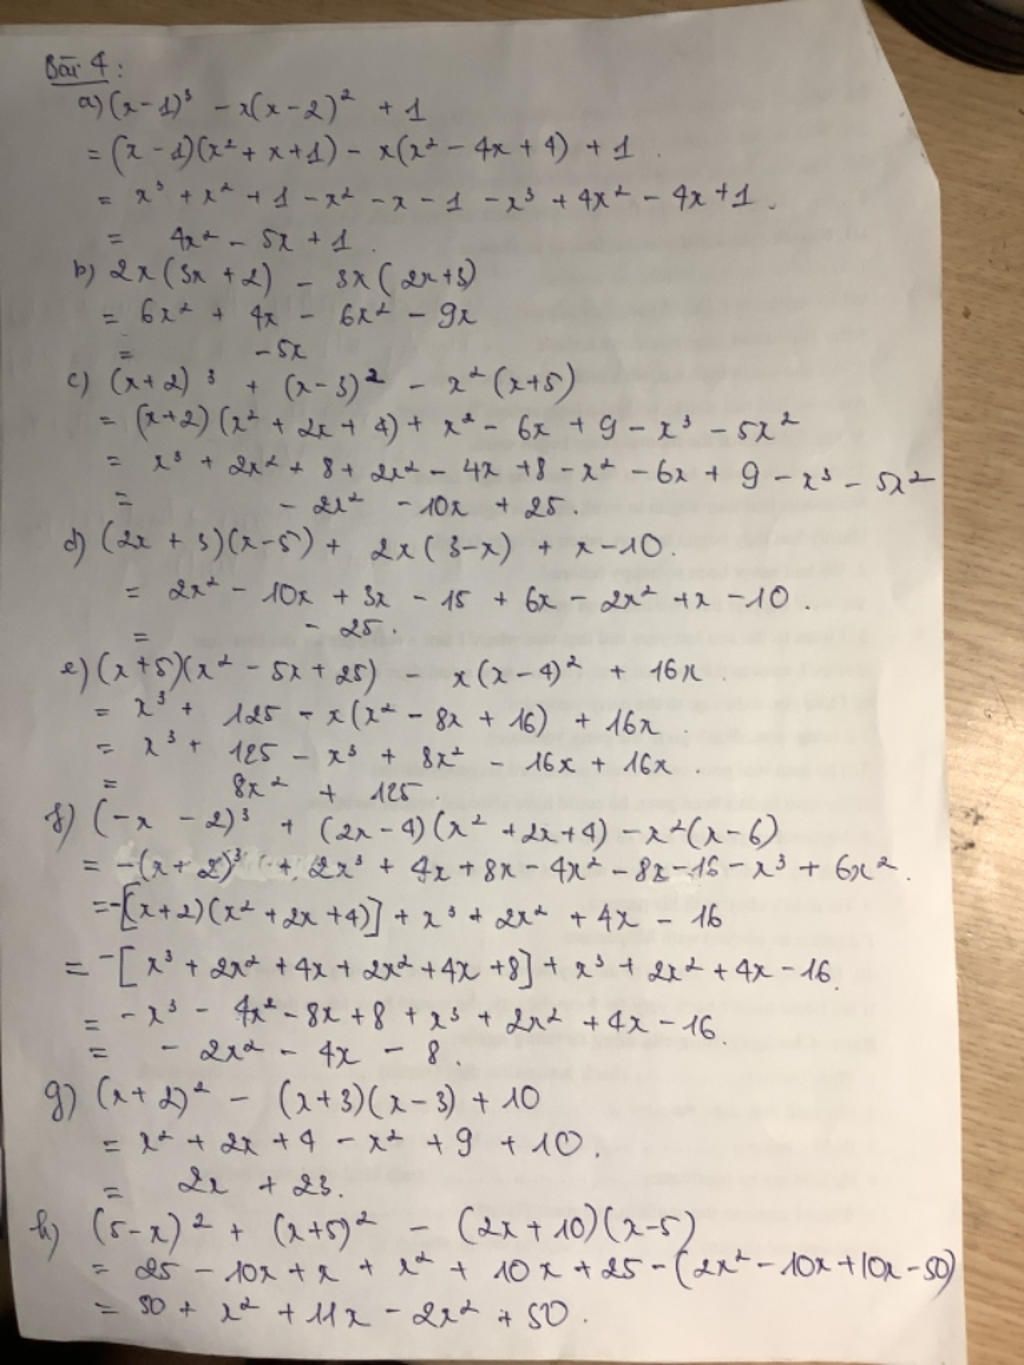 Bài 4:
a) (x-1)³ - x(x-2)² + 1
= (x-1)(x² + x + 1) - x(x² - 4x + 4) + 1.
= x³ + x² + 1 - x² - x - 1 - x³ + 4x² - 4x + 1.
= 4x² - 5x + 1.
b) 2x(3x + 2) - 3x(2x+3)
= 6x² + 4x - 6x² - 9x
= -5x
c) (x+2)³ + (x-3)² - x²(x+5)
= (x+2)(x² + 2x + 4) + x² - 6x + 9 - x³ - 5x²
= x³ + 2x² + 8 + 2x² - 4x + 8 - x² - 6x + 9 - x³ - 5x²
= - 2x² - 10x + 25.
d) (2x + 3)(x-5) + 2x(3-x) + x-10.
= 2x² - 10x + 3x - 15 + 6x - 2x² + x - 10.
= - 25.
e) (x+5)(x² - 5x + 25) - x(x-4)² + 16x.
= x³ + 125 - x(x² - 8x + 16) + 16x.
= x³ + 125 - x³ + 8x² - 16x + 16x.
= 8x² + 125.
f) (-x - 2)³ + (2x-4)(x² + 2x+4) - x²(x-6)
= -(x+2)³ + 2x³ + 4x + 8x - 4x² - 8x - 16 - x³ + 6x².
= -[x+2)(x² + 2x + 4)] + x³ + 2x² + 4x - 16
= -[x³ + 2x² + 4x + 2x² + 4x + 8] + x³ + 2x² + 4x - 16.
= -x³ - 4x² - 8x + 8 + x³ + 2x² + 4x - 16.
= - 2x² - 4x - 8.
g) (x+2)² - (x+3)(x-3) + 10
= x² + 2x + 4 - x² + 9 + 10.
= 2x + 23.
h) (5-x)² + (x+5)² - (2x+10)(x-5)
= 25 - 10x + x + x² + 10x + 25 - (2x² - 10x + 10x - 50)
= 50 + x² + 11x - 2x² + 50.